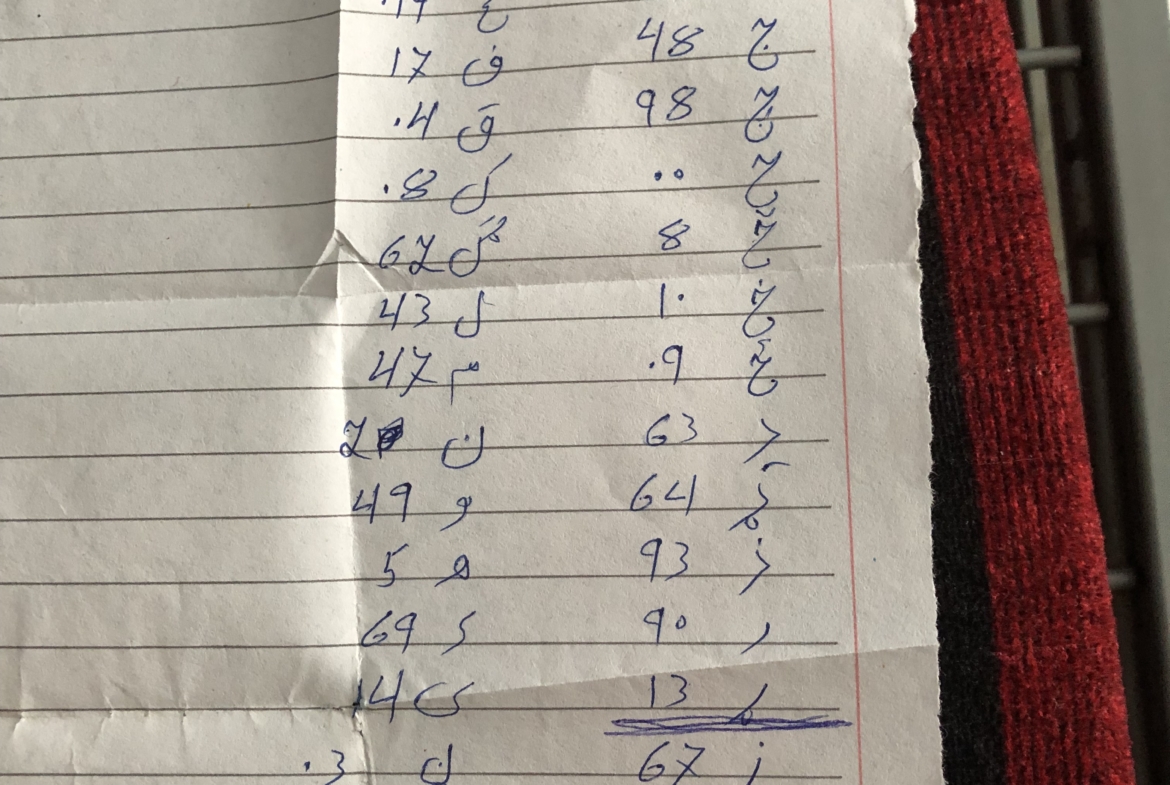 ج 48 ف 17
چ 98 ق .4
ح .. ک .8
خ 8 ګ 67
ځ 1. ل 43
څ .9 م 47
د 63 ن 2
ډ 64 و 49
ذ 93 ه 5
ر 9. 69
ړ 13 ی 14
ز 67 .3